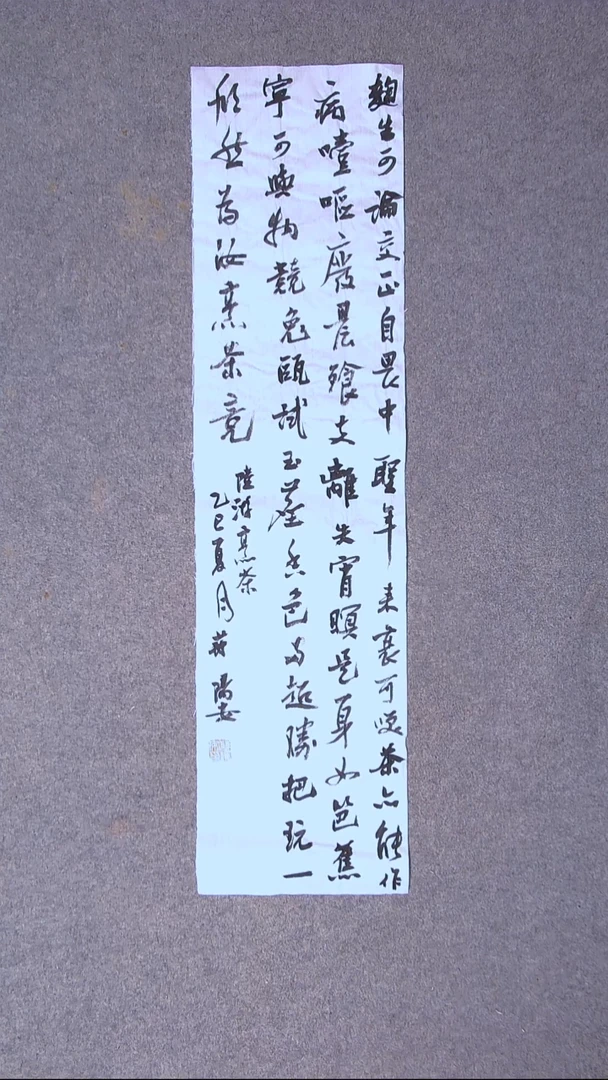 麴生可論交正自畏中聖年来衰可咲茶亦能作
病噎嘔廢晨飱支離失宵瞑是身如笆蕉
寧可與物競兔甌試玉塵香色两超勝把玩一
欣然為汝烹茶竟
陸游烹茶
乙巳夏月